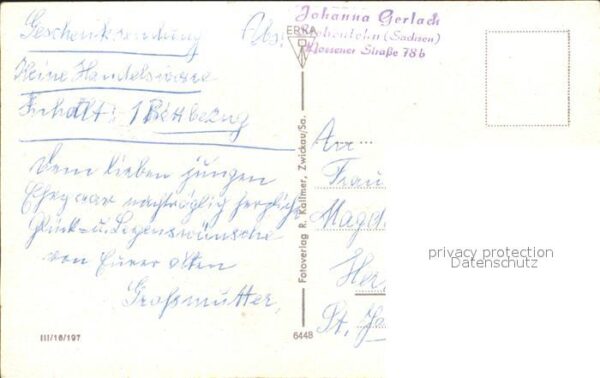 Geschenksendung Abs:
Keine Handelsware
Inhalt: 1 Bettbezug
Dem lieben jungen
Ehepaar nachträglich herzliche
Glück- u. Segenswünsche
von Eurer alten
Großmutter,
III/16/197
ERKA
Fotoverlag R. Kallmer, Zwickau/Sa.
6448
Johanna Gerlach
(Sachsen)
Nossener Straße 78b
An
Frau
Her
St.
privacy protection
Datenschutz